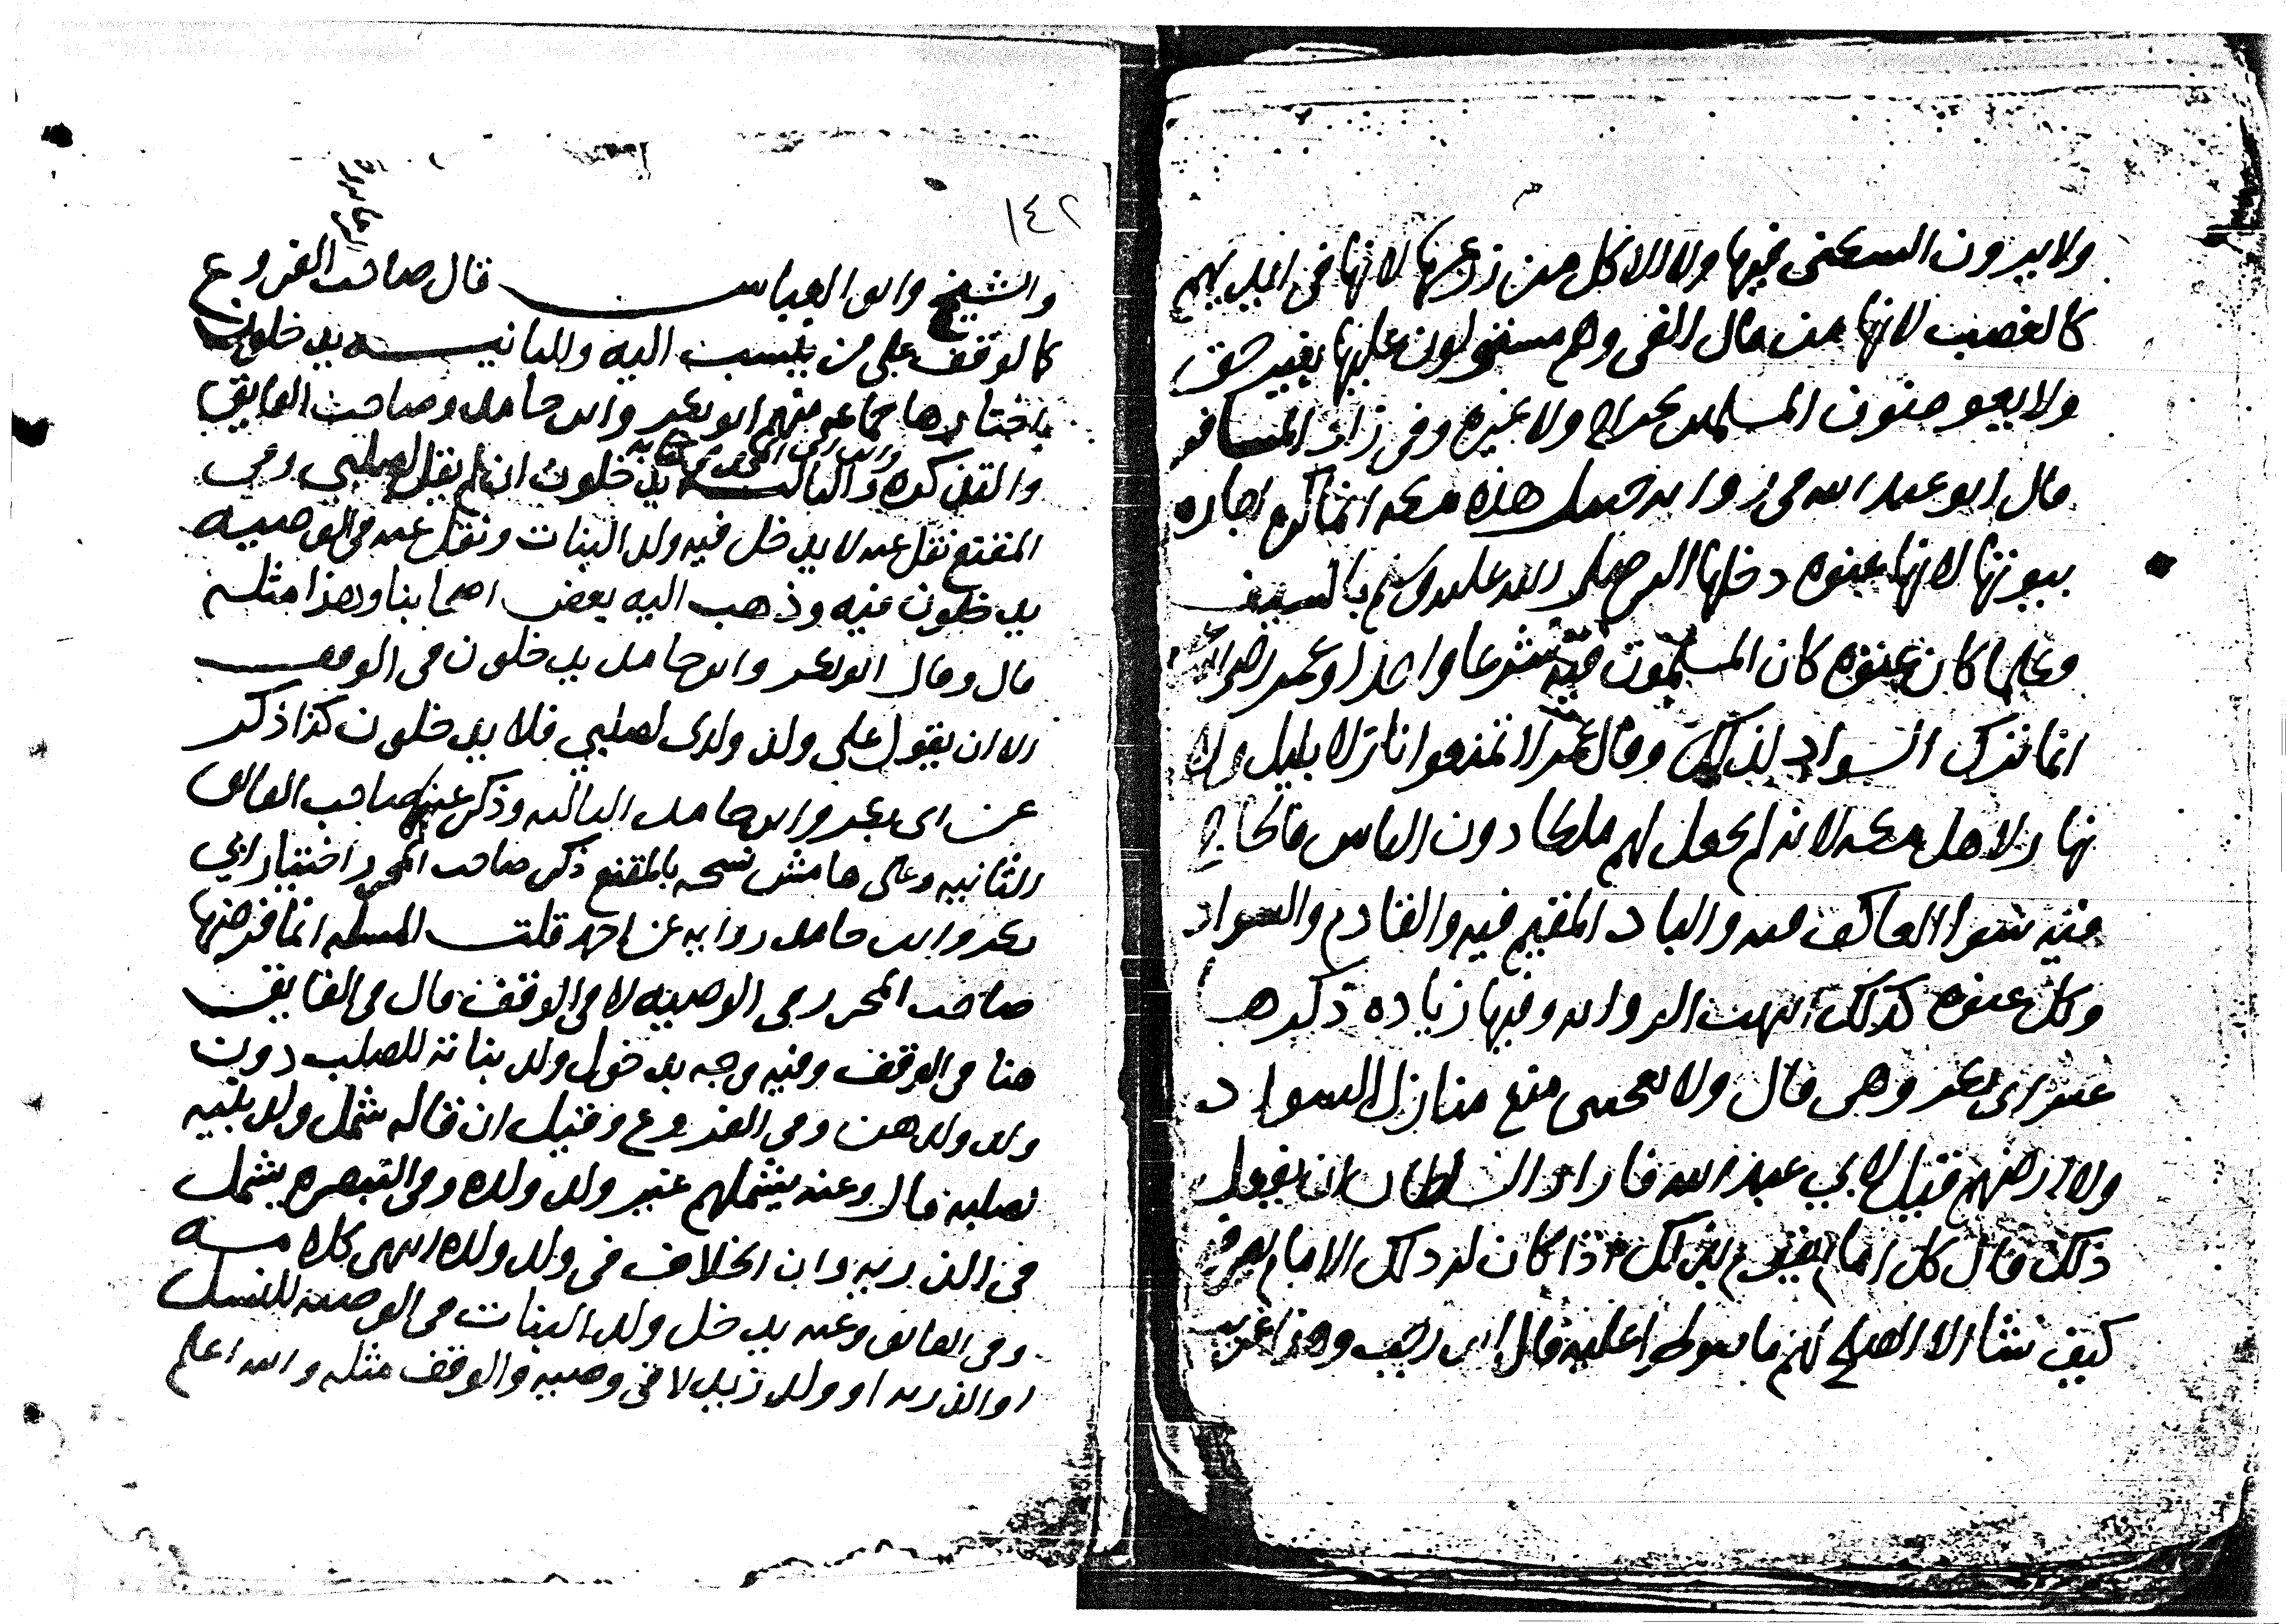 ولا يرون السكنى فيها ولا الاكل من زرعها لانها في ايديهم
كالغصب لانها من مال الفي وهم مستولون عليها بغير حق
ولا يعوضون المسلمين بخراج ولا غيره وفي زاد المسافر
قال ابو عبد الله في رواية حنبل هذه مكة انما كره اجارة
بيوتها لانها عنوة دخلها النبي صلى الله عليه وسلم بالسيف
وعلما كان عنوة كان المسلمون فيه شرعا واحدا وعمر رضي الله
انما ترك السواد لذلك وقال عمر لا تمنعوا نازلا بليل ولا
نهار لاهل مكة لانه لم يجعل لهم ملكا دون الناس فالحاج
فيه سوا العاكف فيه والباد المقيم فيه والقادم والسواد
وكل عنوة كذلك انتهت الرواية وفيها زيادة ذكرها
عنه ابى بكر وهي قال ولا يعجبني منع منازل السواد
ولا ارضهم قيل لابي عبد الله فاراد السلطان ان يفعل
ذلك قال كل امام يقوم بذلك اذا كان له ذلك الامام يصرفه
كيف شا الا الصلح لهم ما صولحوا عليه قال ابن رجب وهذا غريب
١٤٢
والشيخ وابو العباس قال صاحب الفروع
كالوقف على من ينسب اليه والثانية يدخلون
اختارها جماعة منهم ابو بكر وابن حامد وصاحب الفايق
والتذكرة والثالثة يدخلون ان لم يقل لصلبي وفي
المقنع نقل عنه لا يدخل فيه ولد البنات ونقل عنه في الوصية
يدخلون فيه وذهب اليه بعض اصحابنا وهذا مثله
قال وقال ابو بكر وابن حامد يدخلون في الوقف
الا ان يقول على ولد ولدى لصلبي فلا يدخلون كذا ذكر
عن ابى بكر وابن حامد الثالثة وذكر عنهما صاحب الفائق
الثانية وعلى هامش نسخه بالمقنع ذكر صاحب المحرر اختيار ابي
بكر وابن حامد رواية عن احمد قلت المسلة انما فرضها
صاحب المحرر في الوصية لا في الوقف قال في الفايق
هنا في الوقف وفيه وجه يدخول ولد بناته للصلب دون
ولد ولدهن وفي الفروع وقيل ان قاله شمل ولد بنيه
لصلبه قال وعنه يشملهم غير ولد ولده وفي التبصره يشمل
في الذرية وان الخلاف في ولد ولده انتهى كلامه
وفي الفائق وعنه يدخل ولد البنات في الوصية للنسل
او الذرية او ولد زيد لا في وصية والوقف مثله والله اعلم